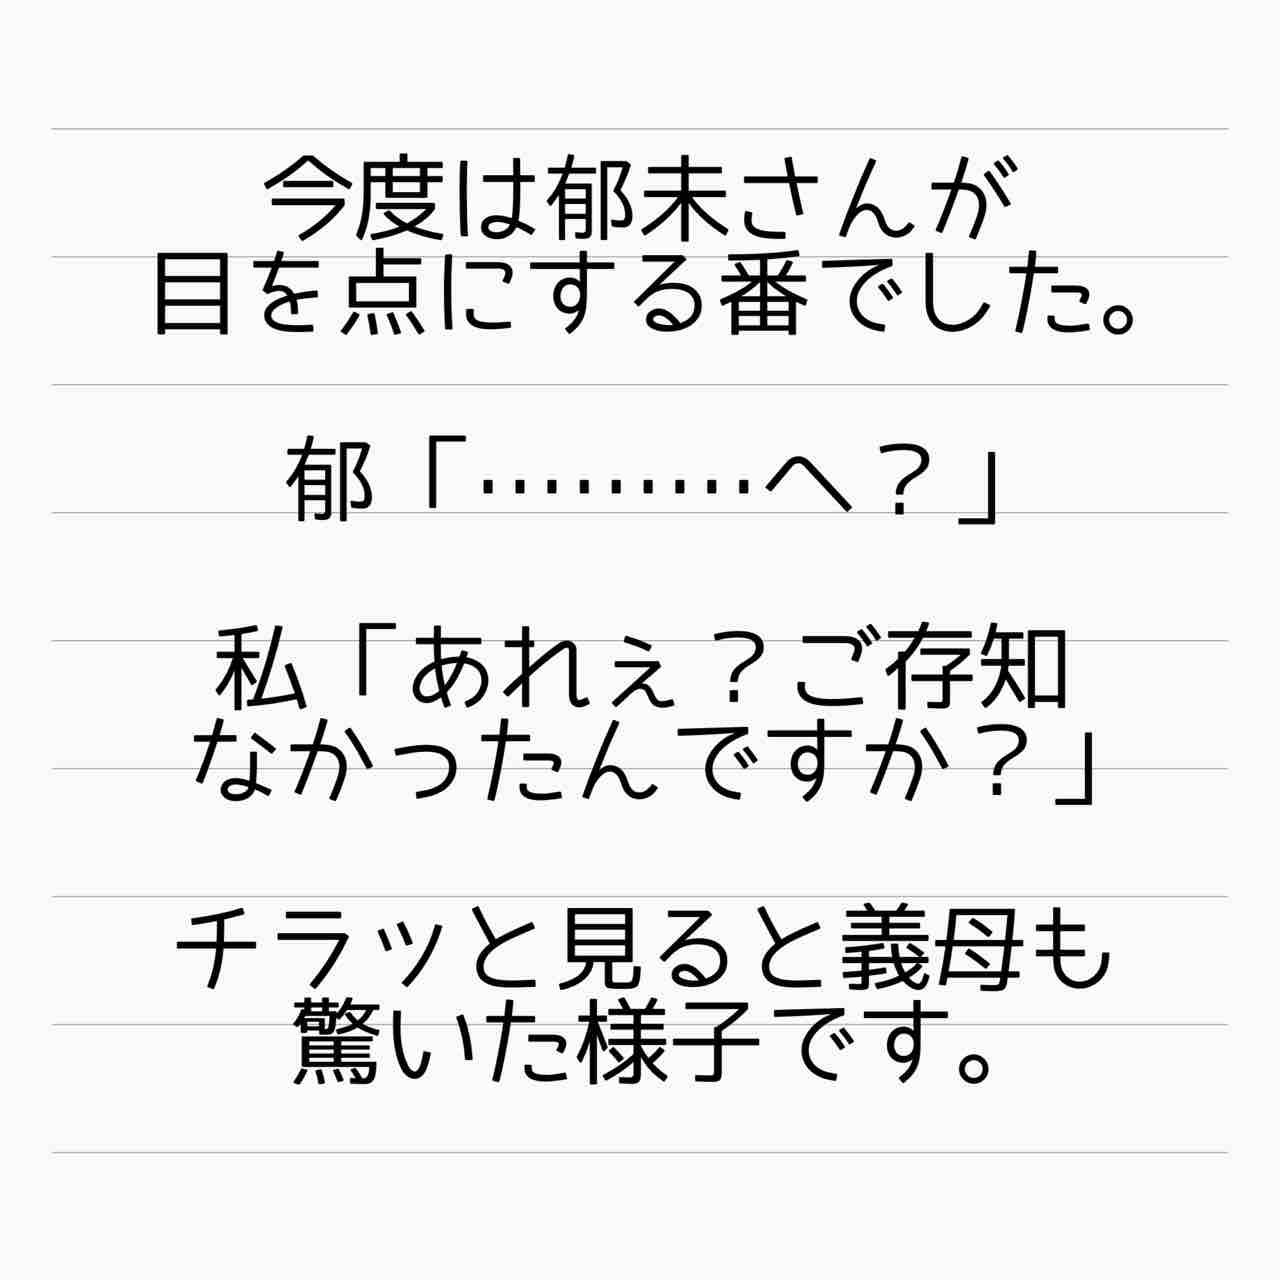 今度は郁未さんが
目を点にする番でした。
郁「………へ？」
私「あれぇ？ご存知
なかったんですか？」
チラッと見ると義母も
驚いた様子です。